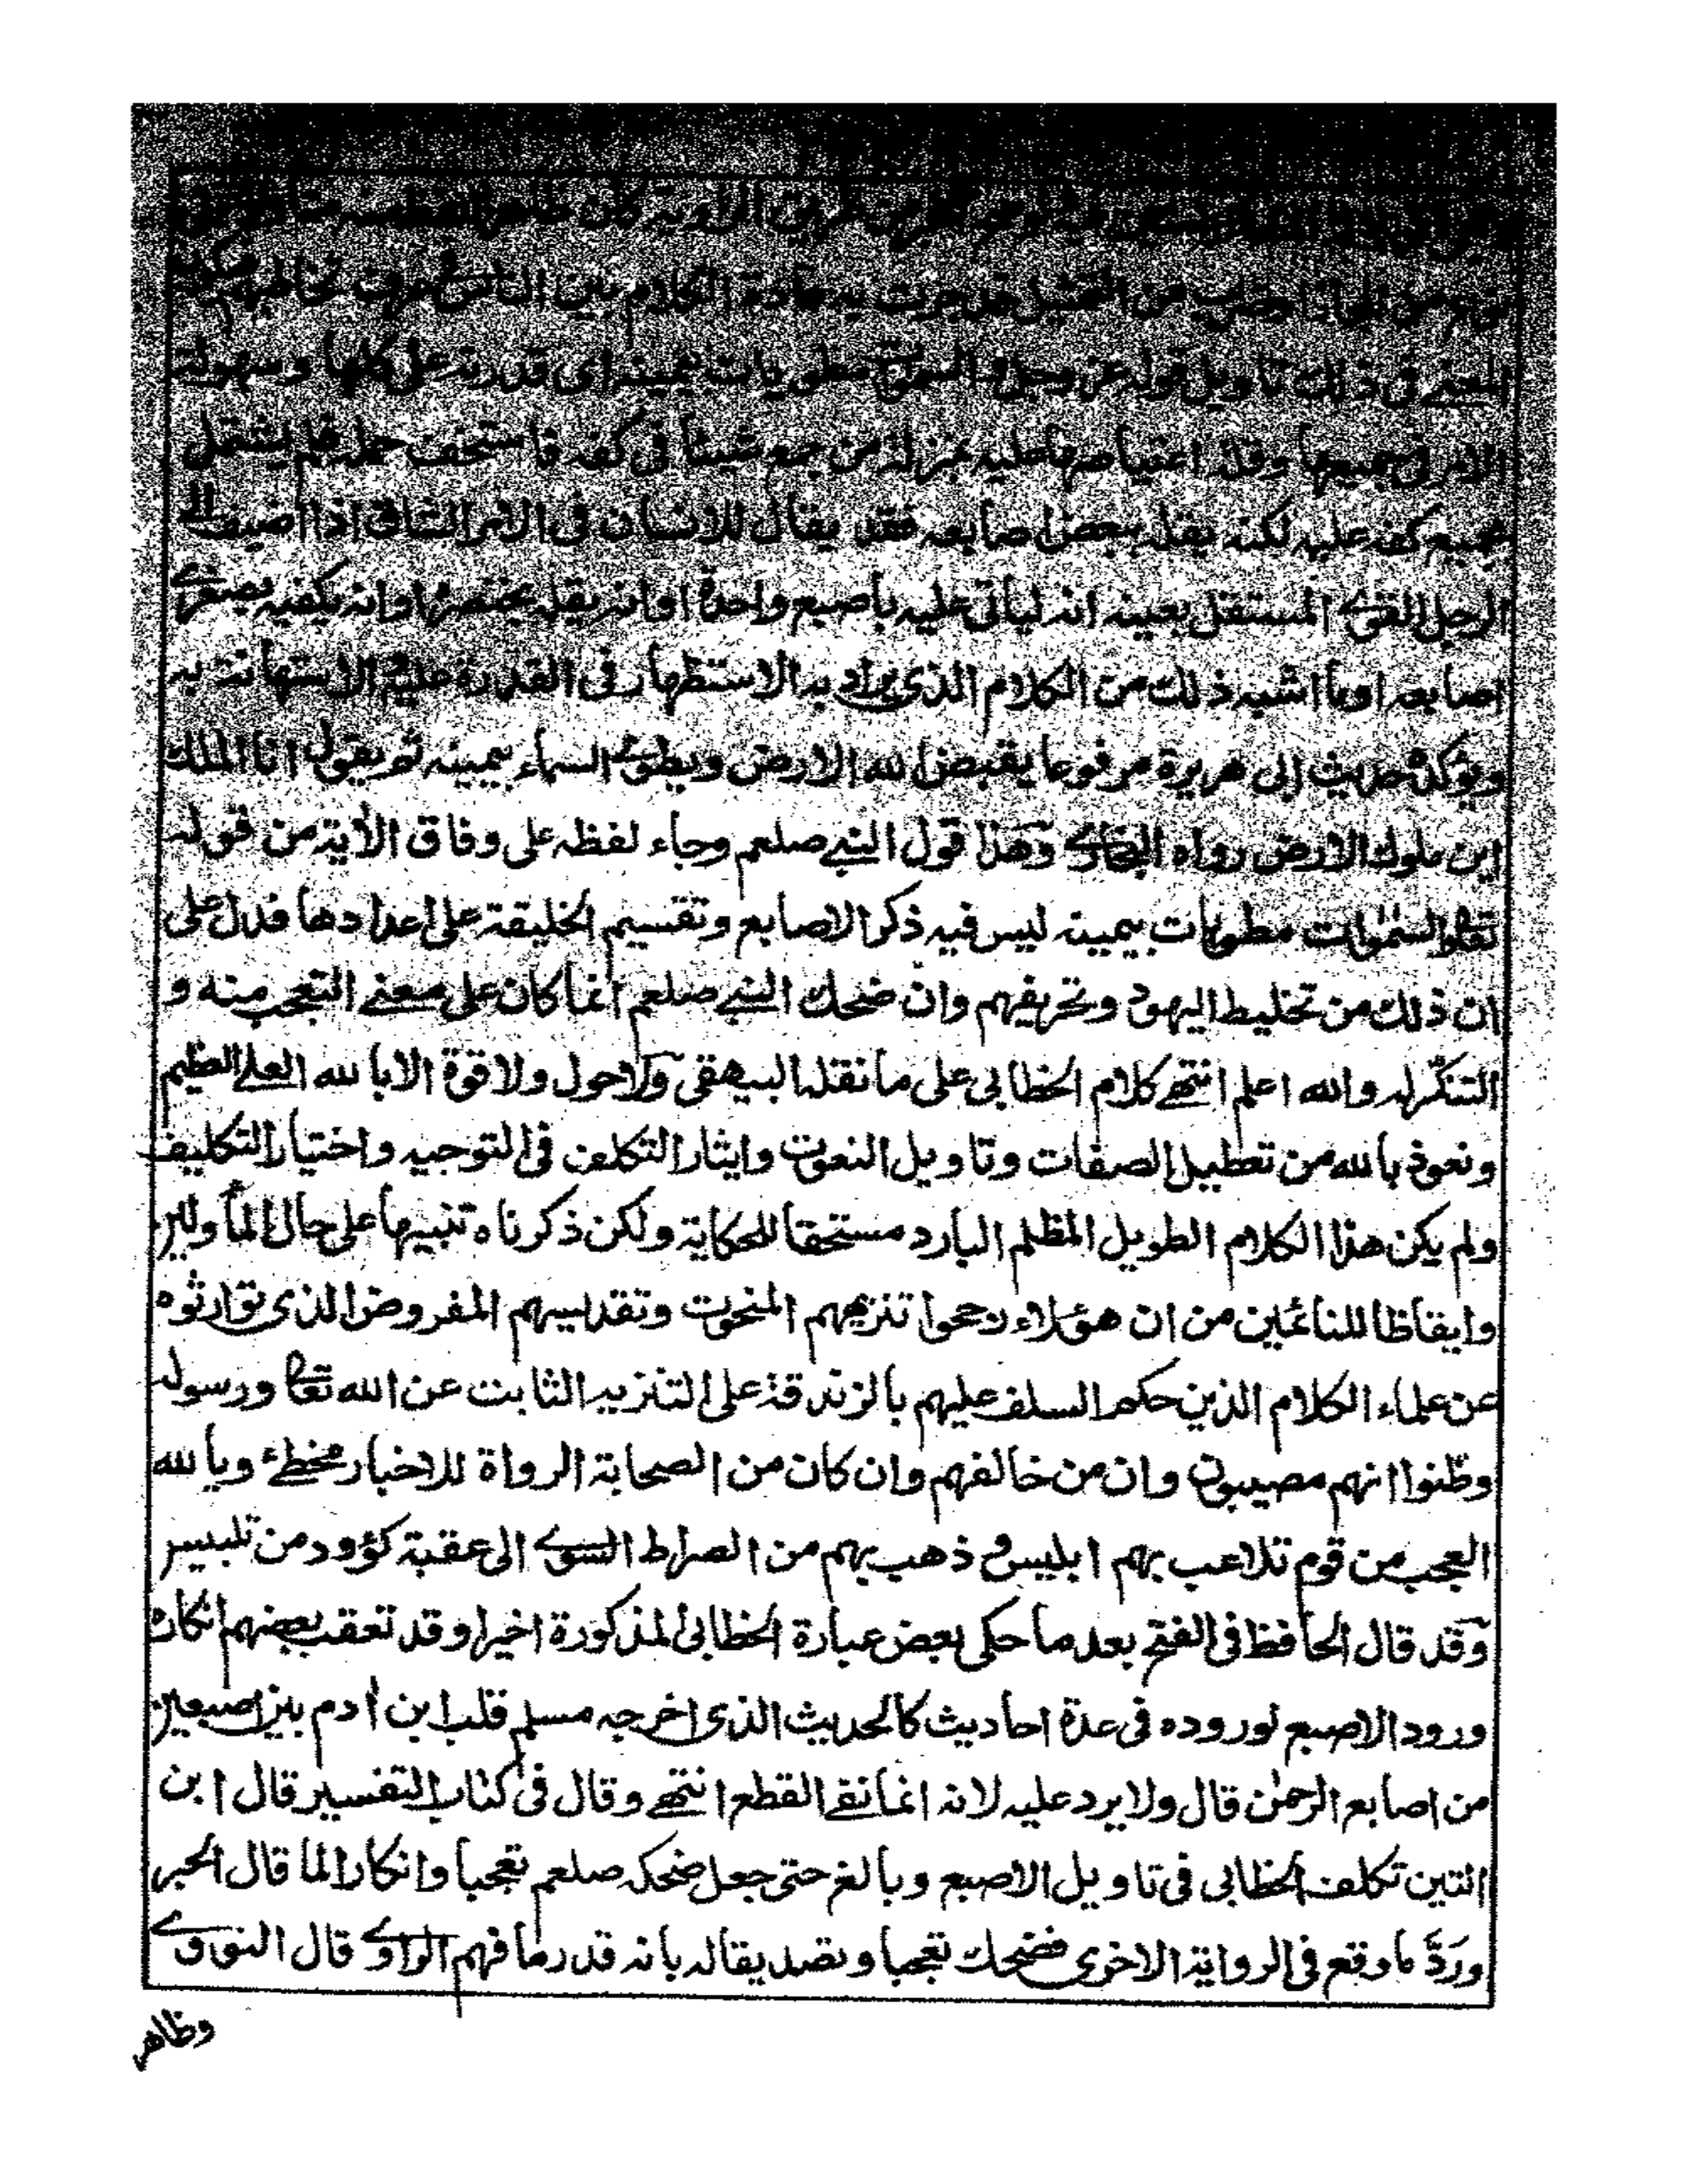 من طريق الرواية كان ظاهر اللفظ منه
من التمثيل قد جرت به عادة الكلام بين الناس في عرف تخاطبهم فيكون
المعنى في ذلك تاويل قوله عز وجل والسموت مطويات بيمينه اى قدرته على طيها وسهولة
الامر فى جمعها وقلة اعتياصها عليه بمنزلة من جمع شيئا فى كفه فاستخف حمله فلم يشتمل
بجميع كفه عليه لكنه يقله ببعض اصابعه فقد يقال للانسان فى الامر الشاق اذا اضيف الى
الرجل القوى المستقل بعبئه انه لياتى عليه باصبع واحدة او انه يقله بخنصره او انه يكفيه بصغرى
اصابعه او ما اشبه ذلك من الكلام الذى يراد به الاستظهار فى القدرة عليه والاستهانة به
ويؤكده حديث ابى هريرة مرفوعا يقبض الله الارض ويطوى السماء بيمينه ثم يقول انا الملك
اين ملوك الارض رواه البخارى وهذا قول النبى صلعم وجاء لفظه على وفاق الأية من قوله
تعالى والسموات مطويات بيمينه ليس فيه ذكر الاصابع وتقسيم الخليقة على اعدادها فدل على
ان ذلك من تخليط اليهود وتحريفهم وان ضحك النبى صلعم انما كان على معنى التعجب منه و
التنكّر له والله اعلم انتهى كلام الخطابى على ما نقله البيهقى ولا حول ولا قوة الا بالله العلى العظيم
ونعوذ بالله من تعطيل الصفات وتاويل النعوت وايثار التكلف فى التوجيه واختيار التكليف
ولم يكن هذا الكلام الطويل المظلم البارد مستحقا للحكاية ولكن ذكرناه تنبيها على حال المأولين
وايقاظا للنائمين من ان هؤلاء رجحوا تنزيههم المنحوت وتقديسهم المفروض الذى توارثوه
عن علماء الكلام الذين حكم السلف عليهم بالزندقة على التنزيه الثابت عن الله تعالى ورسوله
وظنوا انهم مصيبون وان من خالفهم وان كان من الصحابة الرواة للاخبار مخطئ ويا لله
العجب من قوم تلاعب بهم ابليس وذهب بهم من الصراط السوى الى عقبة كؤود من تلبيس
وقد قال الحافظ فى الفتح بعد ما حكى بعض عبارة الخطابى المذكورة اخيرا وقد تعقب بعضهم انكار
ورود الاصبع لوروده فى عدة احاديث كالحديث الذى اخرجه مسلم قلب ابن أدم بين اصبعين
من اصابع الرحمٰن قال ولا يرد عليه لانه انما نفى القطع انتهى وقال فى كتاب التفسير قال ابن
التين تكلف الخطابى فى تاويل الاصبع وبالغ حتى جعل ضحكه صلعم تعجبا وانكارا لما قال الحبر
ورَدَّ ما وقع فى الرواية الاخرى فضحك تعجبا وتصديقا له بانه قدر ما فهم الراوى قال النووى
وظاهر